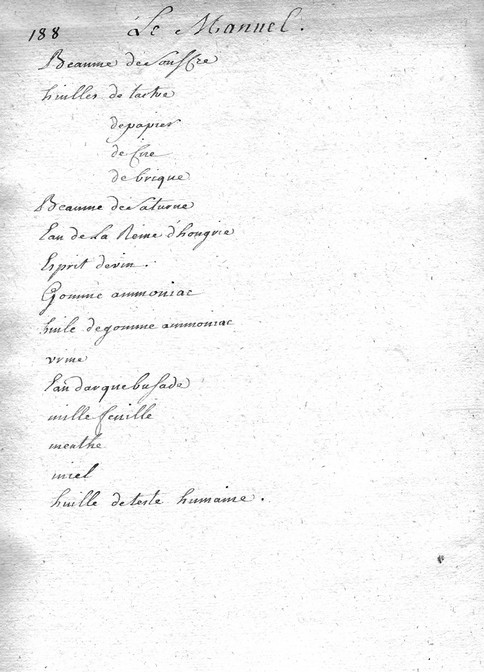 188 Le Manuel.
Beaume de Souffre
huilles de tartre
de papier
de Cire
de brique
Beaume de Saturne
Eau de la Reine d'hongrie
Esprit de vin.
Gomme ammoniac
huile de gomme ammoniac
urine
Eau d'arquebusade
mille feuille
menthe
miel
huille de teste humaine.